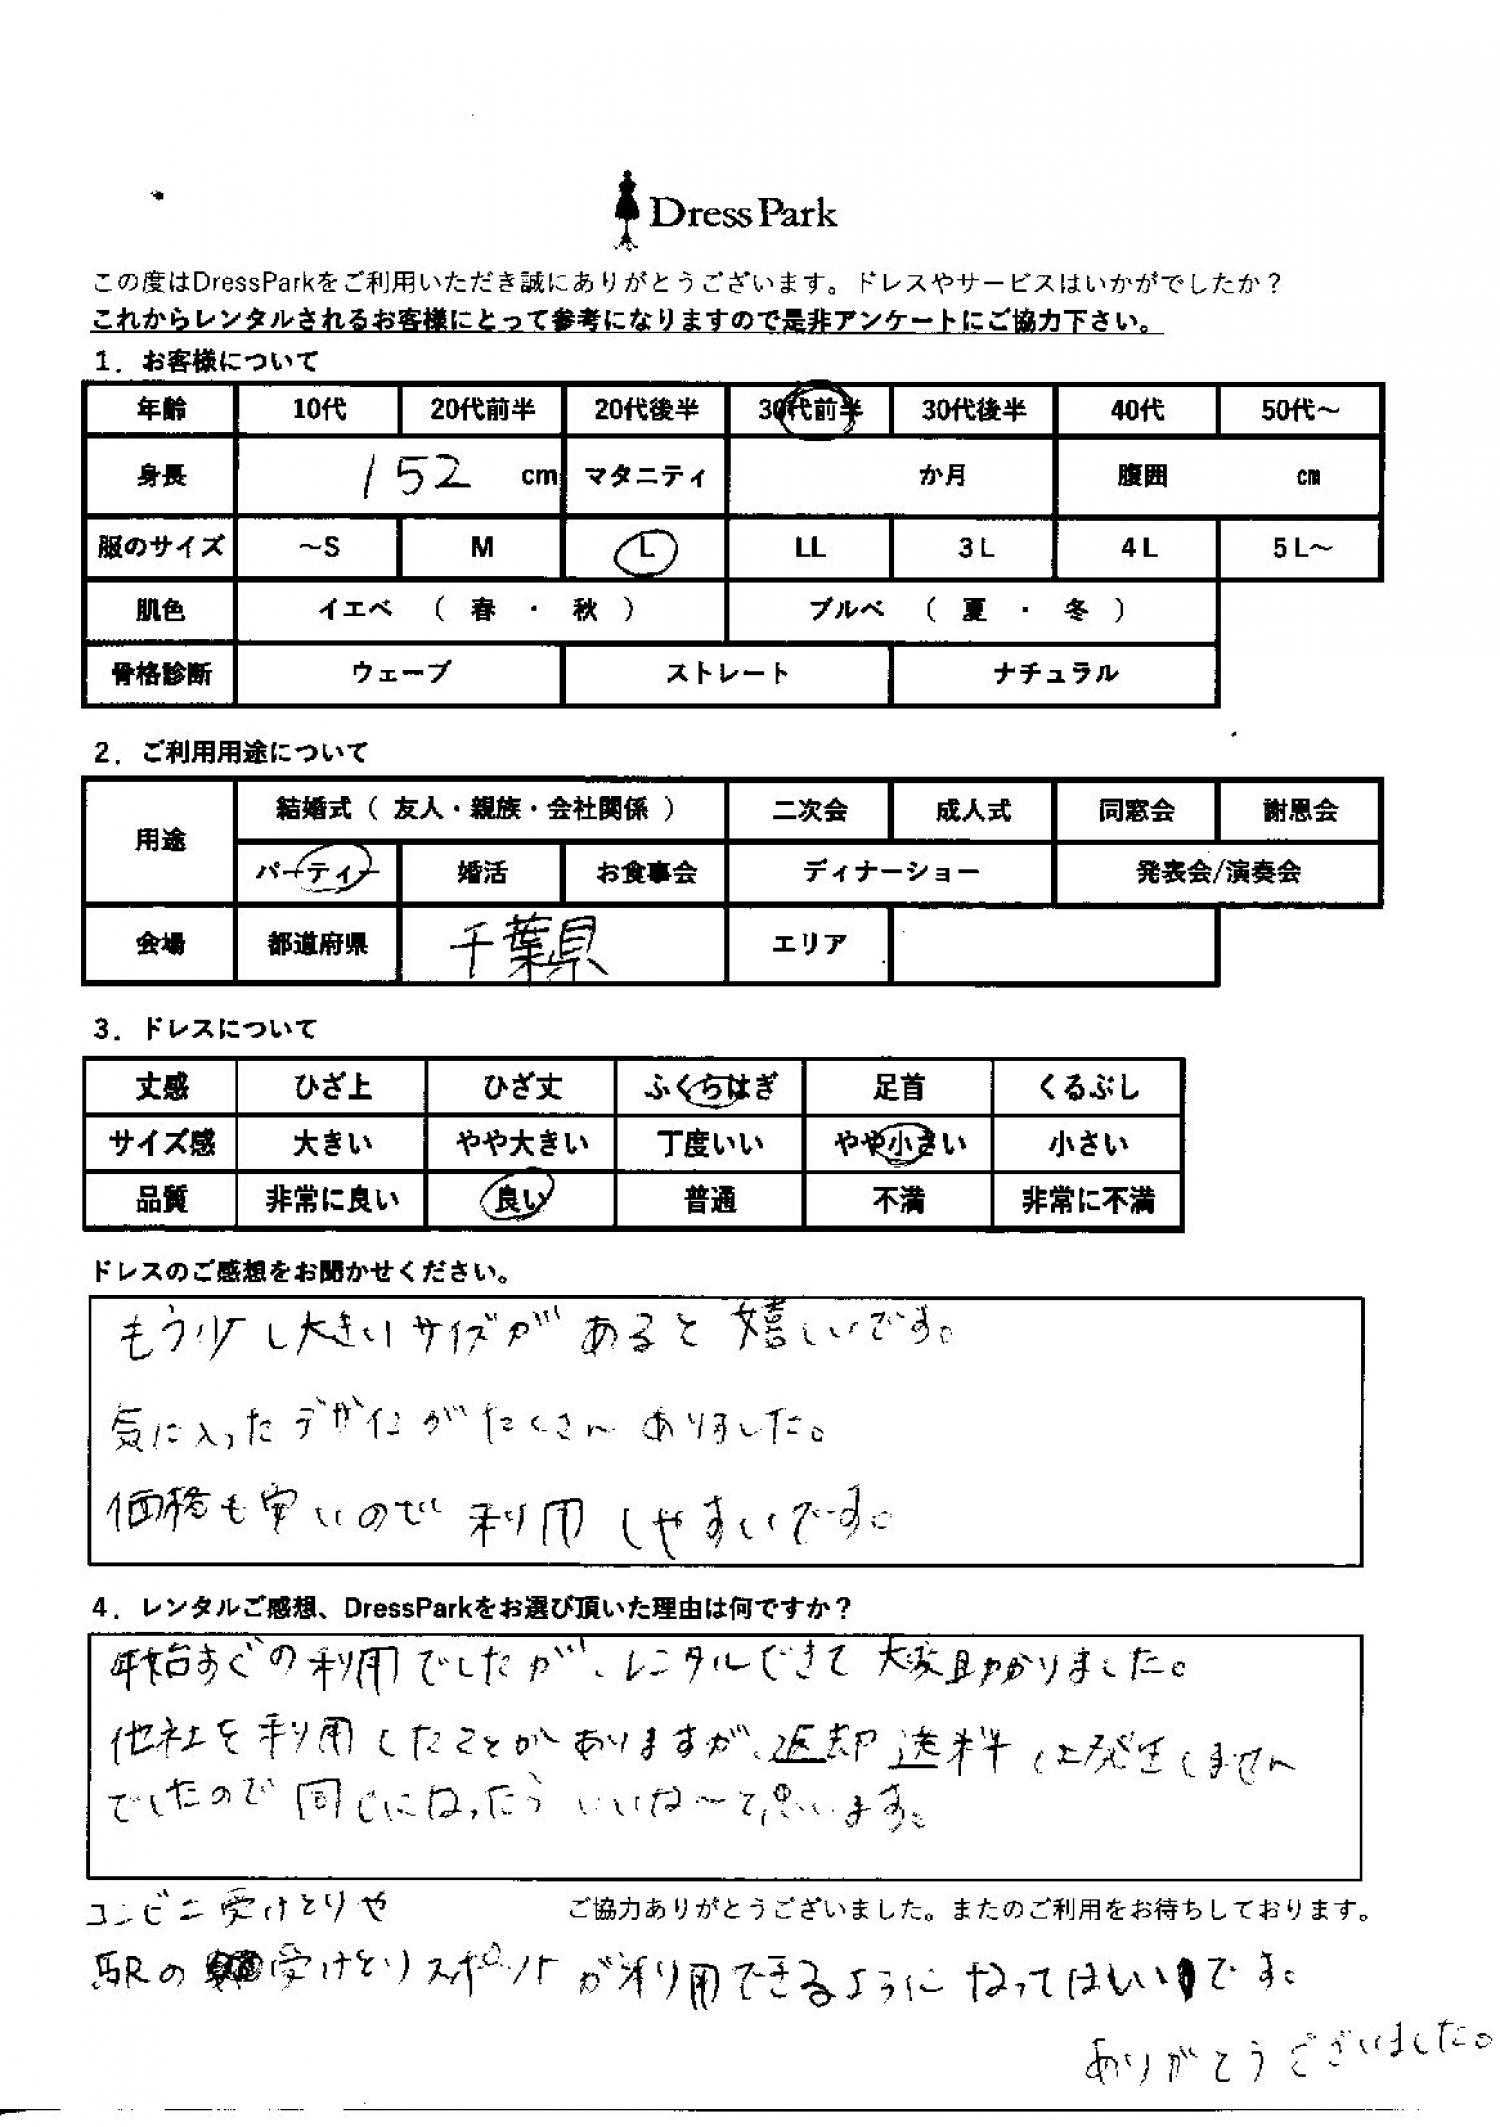 DressPark
この度はDressParkをご利用いただき誠にありがとうございます。ドレスやサービスはいかがでしたか？
これからレンタルされるお客様にとって参考になりますので是非アンケートにご協力下さい。
1．お客様について
年齢 10代 20代前半 20代後半 30代前半 30代後半 40代 50代～
身長 152 cm マタニティ か月 腹囲 cm
服のサイズ ～S M L LL 3L 4L 5L～
肌色 イエベ （ 春 ・ 秋 ） ブルベ （ 夏 ・ 冬 ）
骨格診断 ウェーブ ストレート ナチュラル
2．ご利用用途について
用途 結婚式（ 友人・親族・会社関係 ） 二次会 成人式 同窓会 謝恩会
パーティー 婚活 お食事会 ディナーショー 発表会/演奏会
会場 都道府県 千葉県 エリア
3．ドレスについて
丈感 ひざ上 ひざ丈 ふくらはぎ 足首 くるぶし
サイズ感 大きい やや大きい 丁度いい やや小さい 小さい
品質 非常に良い 良い 普通 不満 非常に不満
ドレスのご感想をお聞かせください。
もう少し大きいサイズがあると嬉しいです。
気に入ったデザインがたくさんありました。
価格も安いので利用しやすいです。
4．レンタルご感想、DressParkをお選び頂いた理由は何ですか？
年始すぐの利用でしたが、レンタルできて大変助かりました。
他社を利用したことがありますが、返却送料は発生しません
でしたので同じになったらいいな〜と思います。
コンビニ受けとりや
ご協力ありがとうございました。またのご利用をお待ちしております。
駅の受けとりスポットが利用できるようになってほしいです。
ありがとうございました。